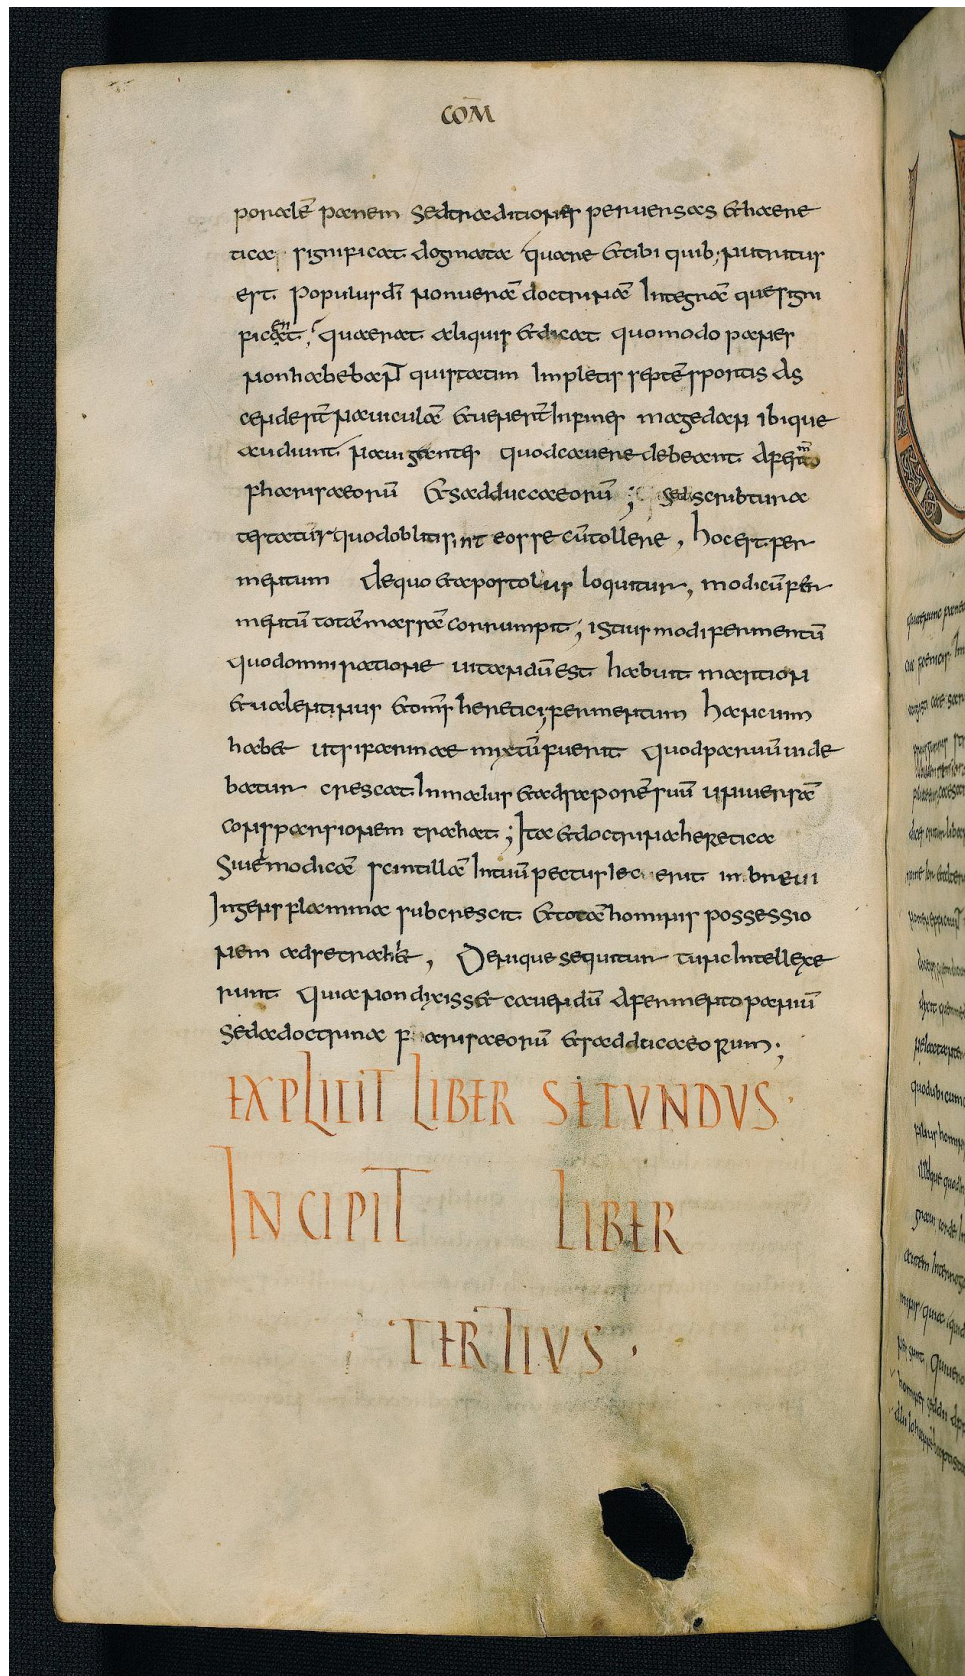 COM̄
poralē panem sed traditiones perversas & here
ticae significat dogmata quare & cibi quib; nutritus
est populus dī non veram doctrinā integrā que signi
ficant, quaerat aliquis & dicat quomodo panes
non habebant qui statim impletis septē sportis as
cenderт̄ naviculā & venerт̄ in fines magedan ibique
audiunt navigantes quod cavere debeant a fermto
pharisaeorū & sadducaeorū; sed scribtura
testatur quod obliti sint eos secū tollere, hoc est fer
mentum de quo & apostolus loquitur, modicū fer
mentū totā massā corrumpit, istius modi fermentū
quod omni ratione vitandū est habuit martion
& valentinus & omīs heretici; fermentum hanc vim
hab& ut si farinae mixtū fuerit quod parvū vide
batur crescat in maius & ad saporē suū universā
consparsionem trahat; Ita & doctrina heretica
si vel modicā scintillā in tuū pectus iecerit in brevi
ingens flamma subcrescit & totā hominis possessio
nem ad se trahit, Denique sequitur tunc intellexe
runt quia non dixiss& cavendū a fermento panū
sed a doctrina pharisaeorū & sadducaeorum;
EXPLICIT LIBER SECUNDUS·
INCIPIT LIBER
·TERTIUS·